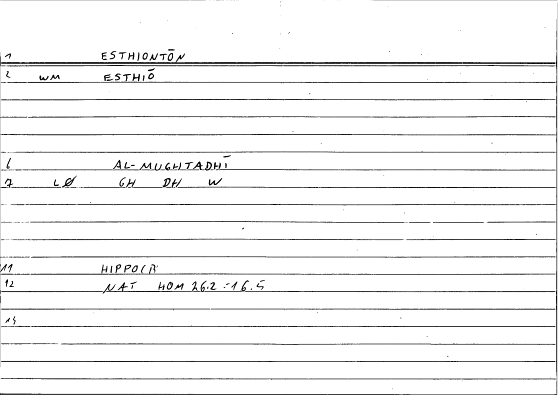 1 ESTHIONTŌN
2 WM ESTHIŌ
6 AL-MUGHTADHĪ
7 LØ GH DH W
11 HIPPOCR
12 NAT HOM 26.2 = 16.5